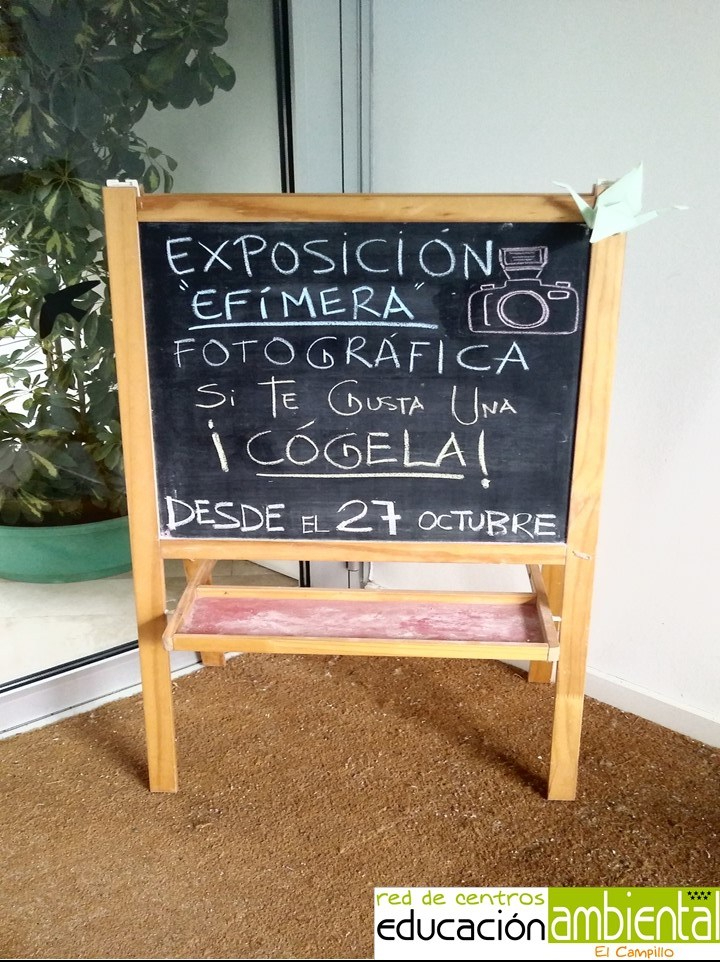 EXPOSICIÓN
"EFÍMERA"
FOTOGRÁFICA
Si TE GUSTA UNA
¡CÓGELA!
DESDE EL 27 OCTUBRE
red de centros
educación ambiental
El Campillo